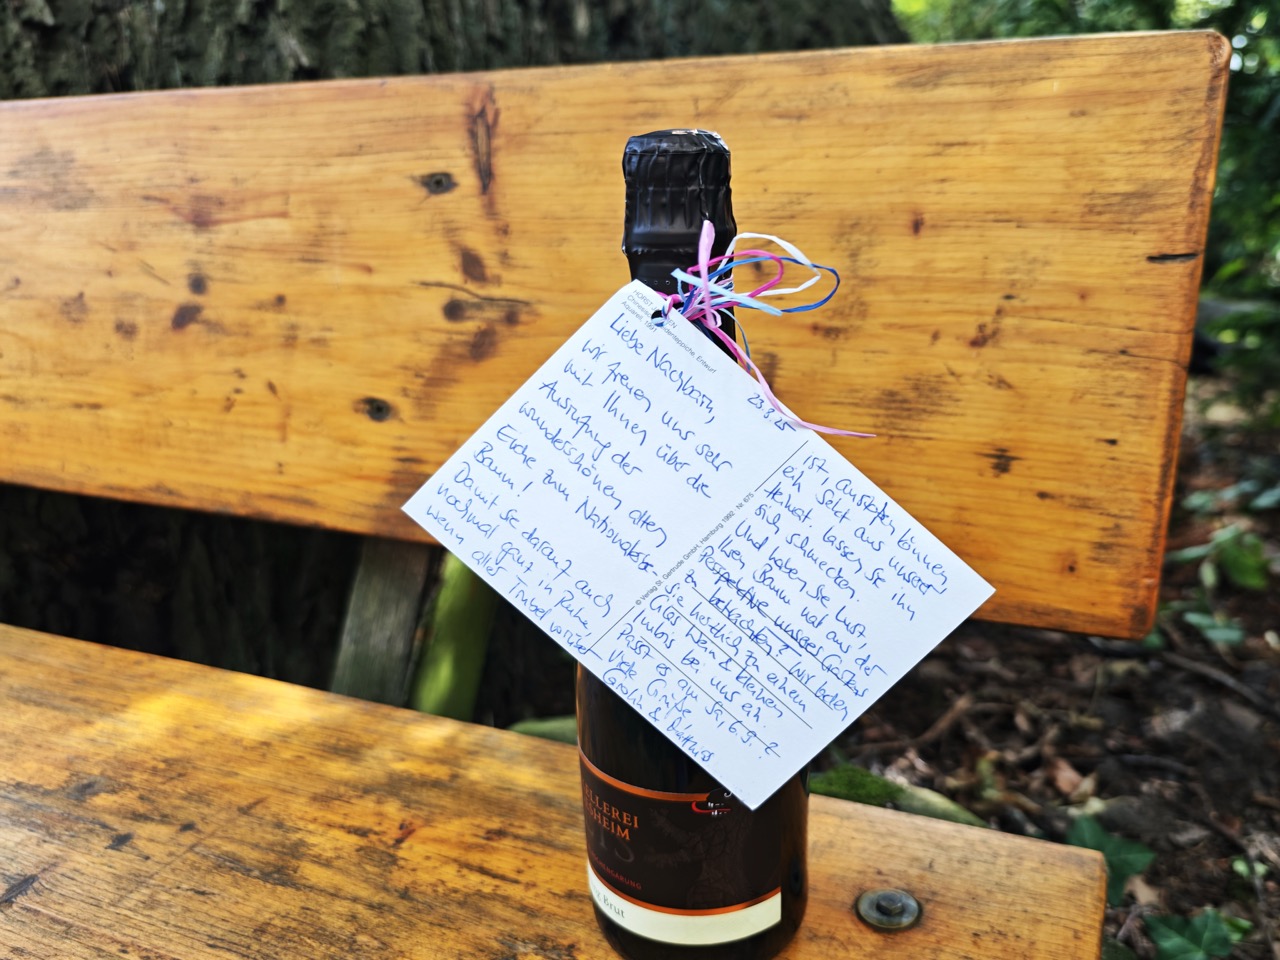 HORST
Aquarell, 1991
Entwurf
23.8.25
Liebe Nachbarn,
wir freuen uns sehr
mit Ihnen über die
Ausrufung der
wunderschönen alten
Eiche zum Nationalerbe-
Baum!
Damit sie darauf auch
nochmal ganz in Ruhe,
wenn aller Trubel vorüber
ist, anstoßen können
ein Sekt aus unserer
Heimat. Lassen Sie ihn
sich schmecken.
Und haben Sie Lust,
Ihren Baum mal aus der
Perspektive unseres Gartens
zu betrachten? Wir laden
Sie herzlich zu einem
Glas Wein & kleinen
Imbis bei uns ein.
Passt es am Sa, 6.9.?
Viele Grüße
& Matthias
© Verlag St. Gertrude GmbH, Hamburg 1992 · Nr. 675
ELLEREI
SHEIM
Brut